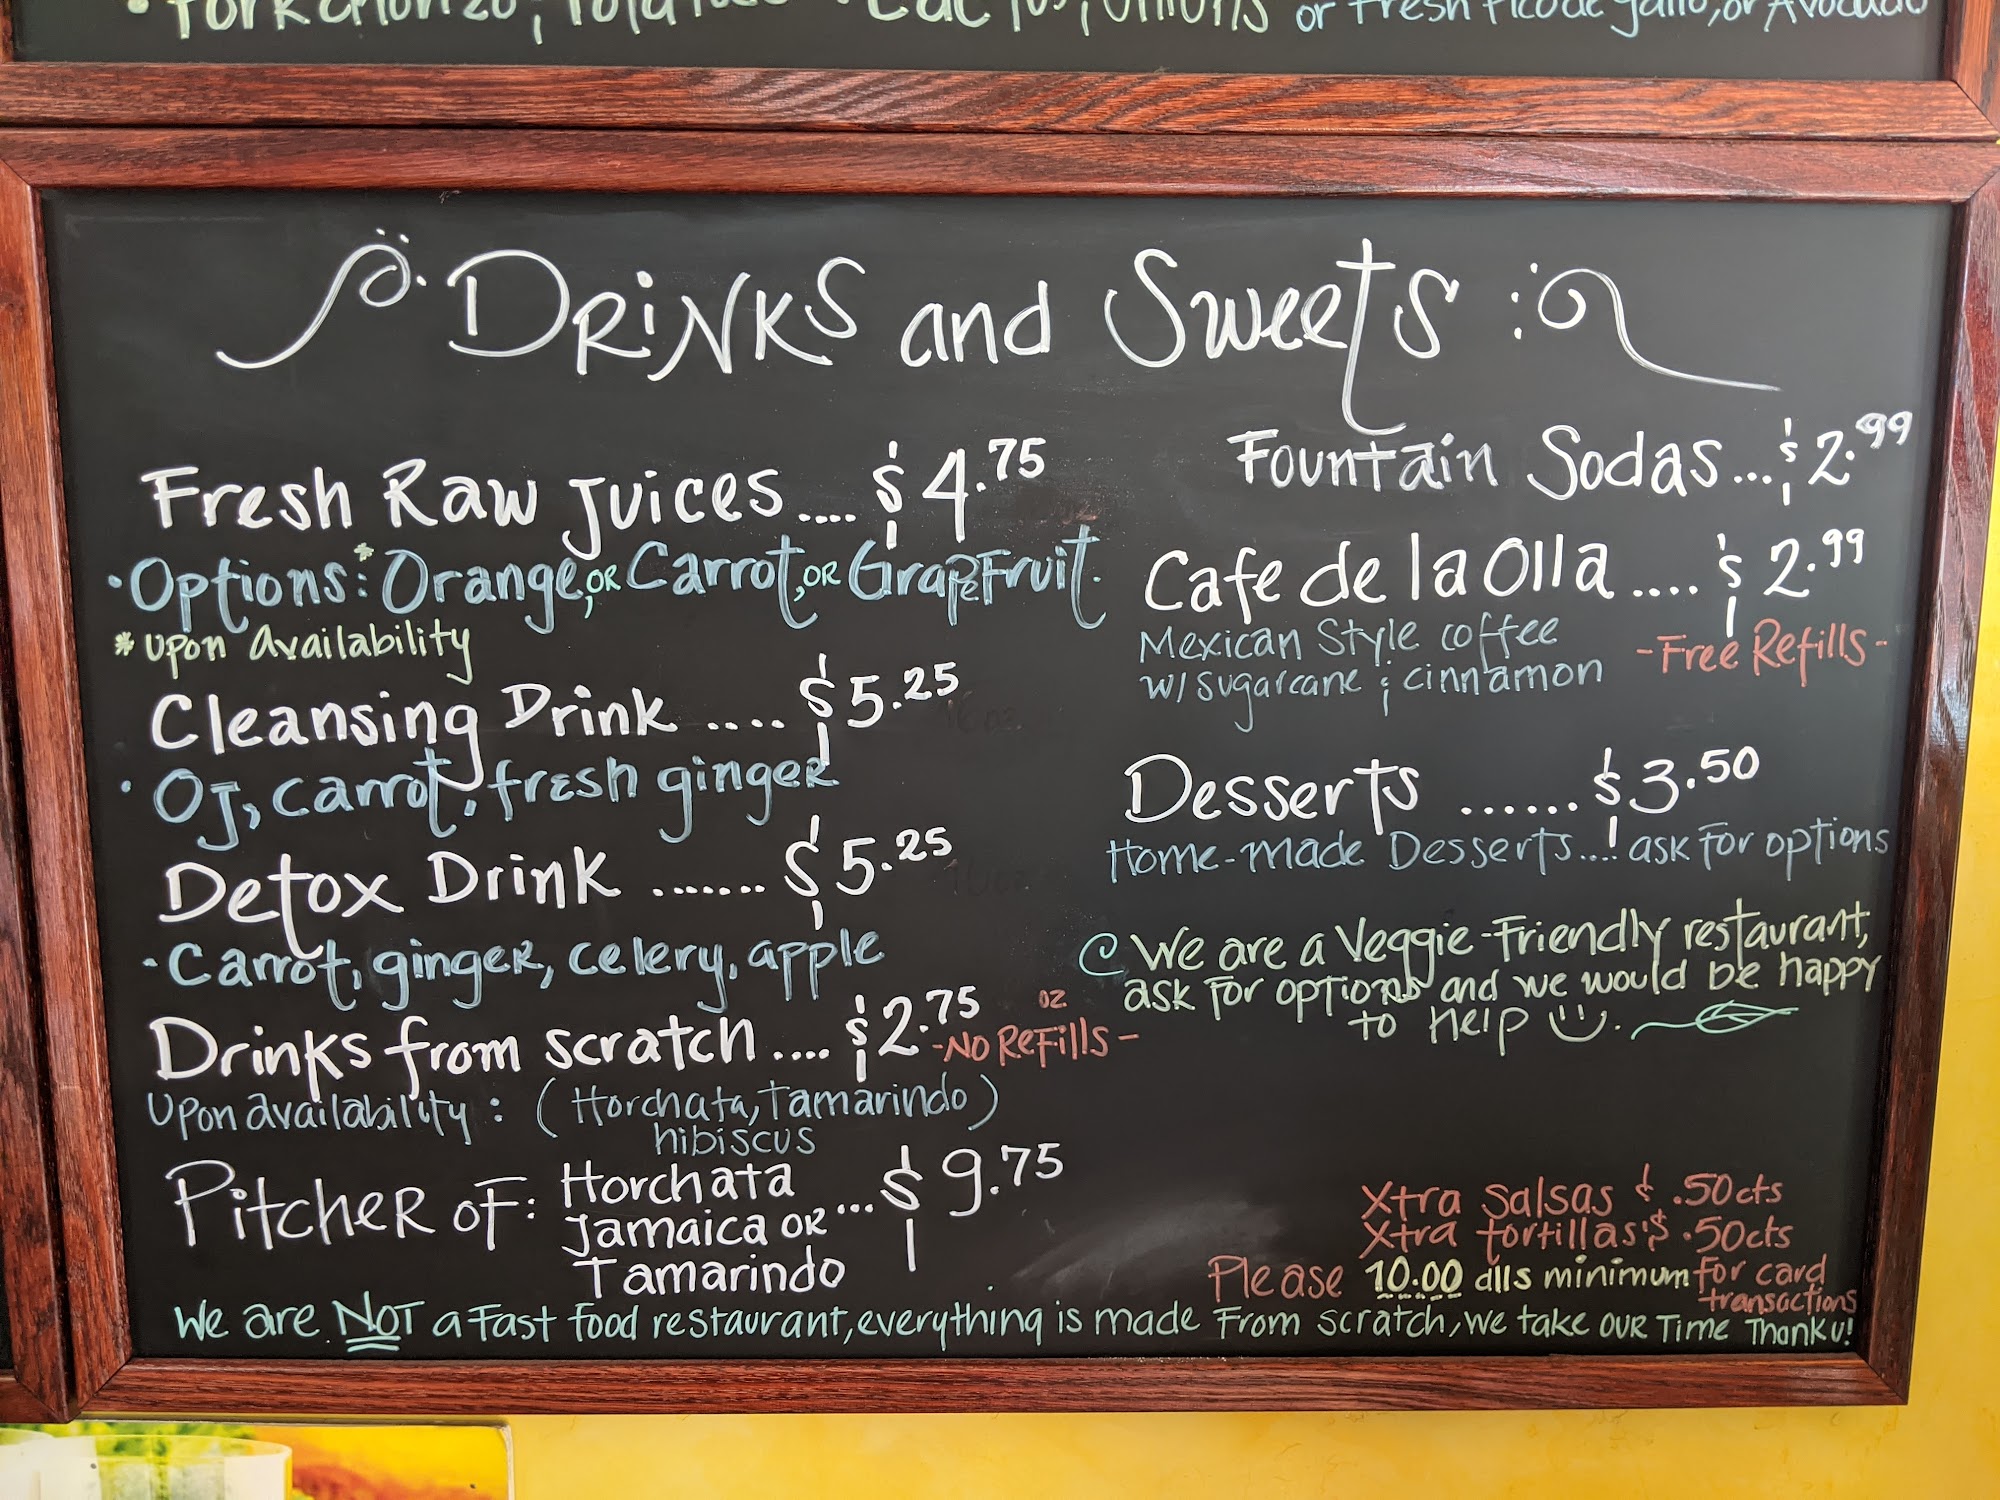 or Fresh Picode gallo, or Avocado
DRINKS and Sweets
Fresh Raw Juices .... $4.75
• Options:* Orange, OR Carrot, OR GrapeFruit.
* Upon Availability
Cleansing Drink .... $5.25
• OJ, carrot, fresh ginger
Detox Drink ....... $5.25
• Carrot, ginger, celery, apple
Drinks from scratch .... $2.75 oz
-No Refills-
Upon availability: (Horchata, Tamarindo)
hibiscus
Pitcher of: Horchata
Jamaica or ... $9.75
Tamarindo
Fountain Sodas ... $2.99
Cafe de la Olla .... $2.99
Mexican Style coffee
w/ sugarcane & cinnamon
-Free Refills-
Desserts ...... $3.50
Home-made Desserts.... ask for options
We are a Veggie-Friendly restaurant,
ask for options and we would be happy
to help
Xtra Salsas $ .50cts
Xtra tortillas $ .50cts
Please 10.00 dlls minimum for card
transactions
We are NOT a Fast Food restaurant, everything is made From scratch, We take our Time Thank U!